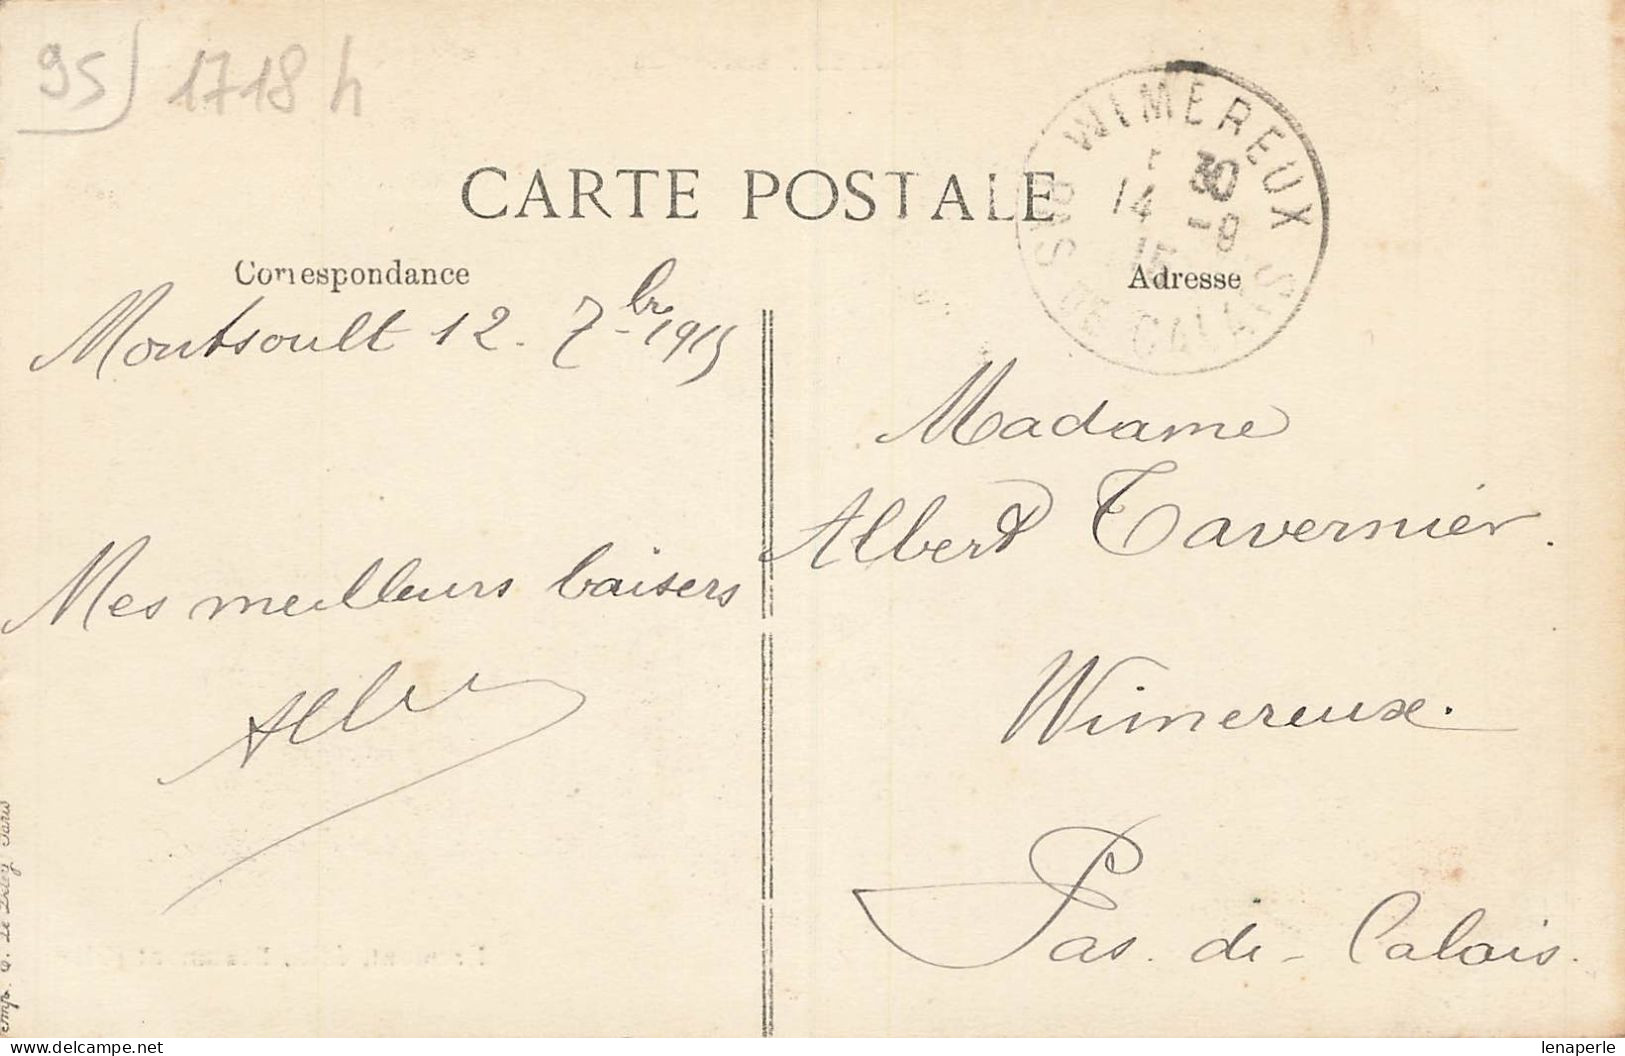 95) 1718 h
CARTE POSTALE
WIMEREUX
PAS DE CALAIS
30
14 -9
15
Correspondance
Adresse
Montsoult 12. 7bre 1915
Mes meilleurs baisers
Madame
Albert Tavernier.
Wimereux.
Pas-de-Calais.
Imp. E. Le Deley Paris
lenaperle